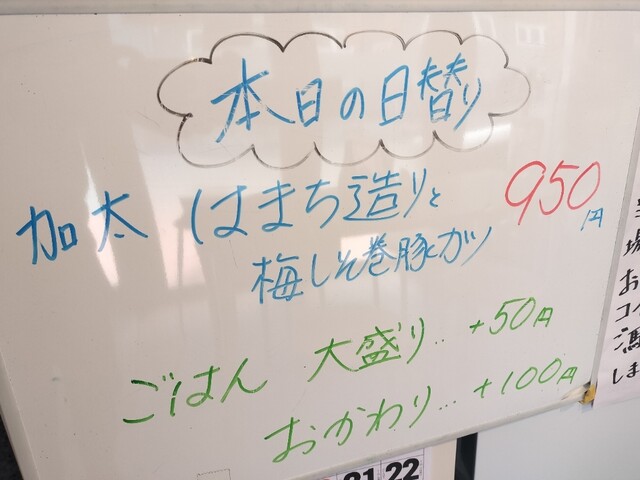 本日の日替り
加太 はまち造りと 950円
梅しそ巻豚カツ
ごはん 大盛り‥+50円
おかわり…+100円
場
お
コ
ご
しま
21 22